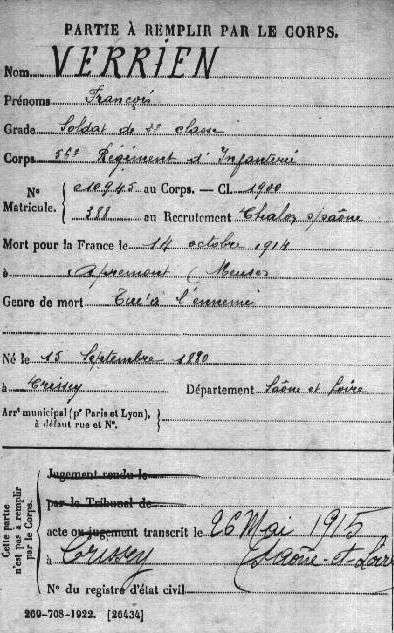 PARTIE À REMPLIR PAR LE CORPS.
Nom VERRIEN
Prénoms François
Grade Soldat de 2e classe
Corps 56e Régiment d'Infanterie
Nos Matricule. { 010945 au Corps. — Cl. 1900
388 au Recrutement Chalon s/saône
Mort pour la France le 14 octobre 1914
à Apremont (Meuse)
Genre de mort Tué à l'ennemi
Né le 15 Septembre 1880
à Crissey Département Saône et Loire
Arrt municipal (pr Paris et Lyon), à défaut rue et No. }
Cette partie n'est pas à remplir par le Corps.
Jugement rendu le
par le Tribunal de
acte ou jugement transcrit le 26 Mai 1915
à Crissey (Saône-et-Loire
No du registre d'état civil
269-708-1922. [26434]